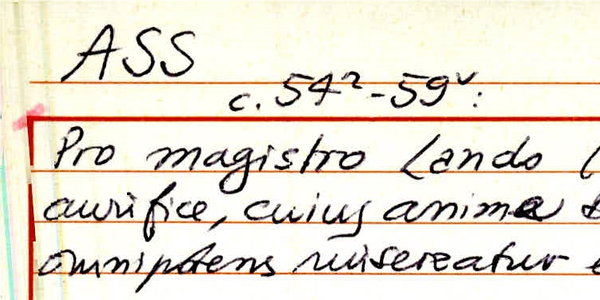 ASS
c. 54r-59v:
Pro magistro Lando (
aurifice, cuius anima
omnipotens misereatur